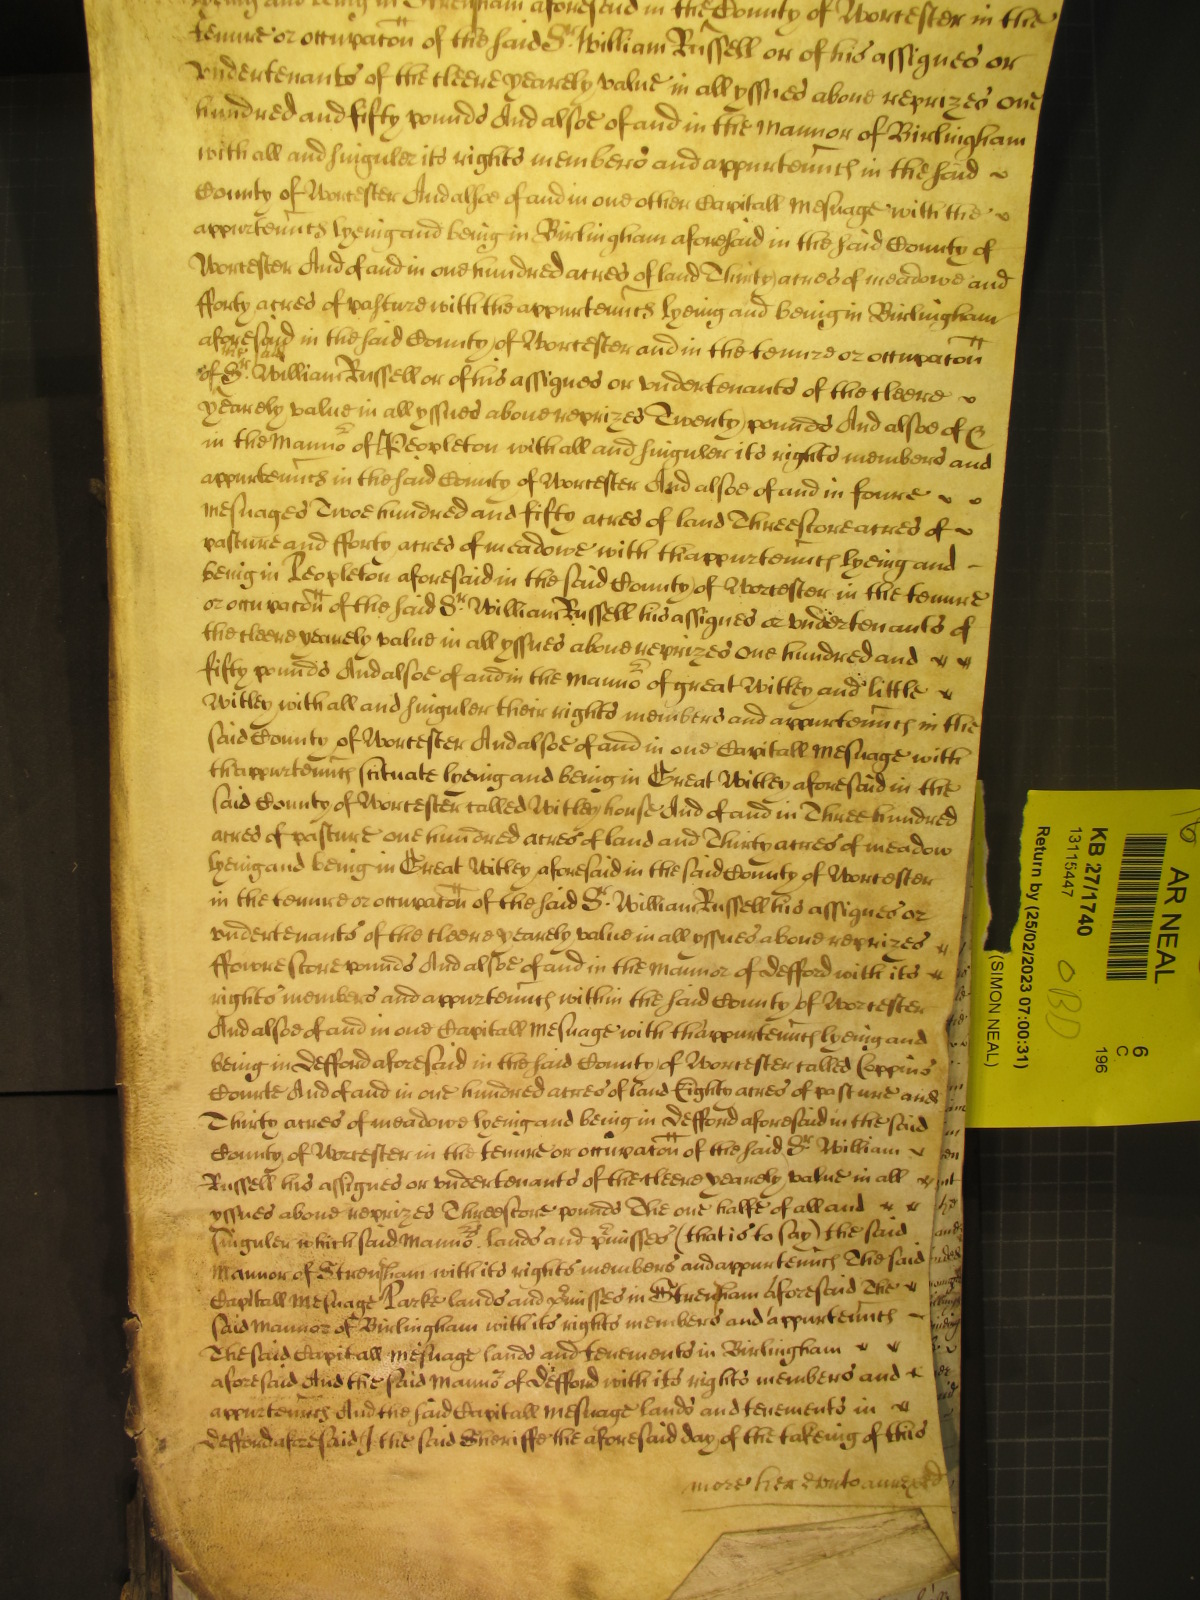 lyeing and being in Strensham aforesaid in the County of Worcester in the
tenure or occupacon of the said Sr. William Russell or of his assignes or
vndertenants of the cleere yearely value in all yssues aboue reprizes one
hundred and fifty pounds And alsoe of and in the Mannor of Birlingham
with all and singuler its rights members and appurtenncs in the said
County of Worcester And alsoe of and in one other Capitall Mesuage with the
appurtenncs lyeing and being in Birlingham aforesaid in the said County of
Worcester And of and in one hundred acres of land Thirty acres of meadowe and
fforty acres of pasture with the appurtenncs lyeing and being in Birlingham
aforesaid in the said County of Worcester and in the tenure or occupacon
of the said Sr. William Russell or of his assignes or vndertenants of the cleere
yearely value in all yssues aboue reprizes Twenty pounds And alsoe of &
in the Manno of Peopleton with all and singuler its rights members and
appurtenncs in the said County of Worcester And alsoe of and in foure
mesuages Twoe hundred and fifty acres of land Threescore acres of
pasture and fforty acres of meadowe with thappurtenncs lyeing and
being in Peopleton aforesaid in the said County of Worcester in the tenure
or occupacon of the said Sr. William Russell his assignes or vndertenants of
the cleere yearely value in all yssues aboue reprizes one hundred and
fifty pounds And alsoe of and in the Manno of great Witley and little
Witley with all and singuler their rights members and appurtenncs in the
said County of Worcester And alsoe of and in one Capitall Mesuage with
thappurtenncs scituate lyeing and being in Great Witley aforesaid in the
said County of Worcester called Witley house And of and in Three hundred
acres of pasture one hundred acres of land and Thirty acres of meadow
lyeing and being in Great Witley aforesaid in the said County of Worcester
in the tenure or occupacon of the said Sr. William Russell his assignes or
vndertenants of the cleere yearely value in all yssues aboue reprizes
ffowrescore pounds And alsoe of and in the Mannor of Defford with its
rights members and appurtenncs within the said County of Worcester
And alsoe of and in one Capitall Mesuage with thappurtenncs lyeing and
being in Defford aforesaid in the said County of Worcester called Coppins
Courte And of and in one hundred acres of land Eighty acres of pasture and
Thirty acres of meadowe lyeing and being in Defford aforesaid in the said
County of Worcester in the tenure or occupacon of the said Sr William
Russell his assignes or vndertenants of the cleere yearely value in all
yssues aboue reprizes Threescore pounds The one halfe of all and
singuler which said Manno's lands and pmisses (that is to say) the said
Mannor of Strensham with its rights members and appurtenncs The said
Capitall Mesuage Parke lands and pmisses in Strensham aforesaid The
said Mannor of Birlingham with its rights members and appurtenncs
The said Capitall Mesuage lands and tenements in Birlingham
aforesaid And the said Manno of Defford with its rights members and
appurtenncs And the said Capitall Mesuage lands and tenements in
Defford aforesaid I the said Sheriffe the aforesaid day of the takeing of this
more herevnto annexed
AR NEAL
6
C
196
KB 27/1740
13115447
OBD
Return by (25/02/2023 07:00:31)
(SIMON NEAL)